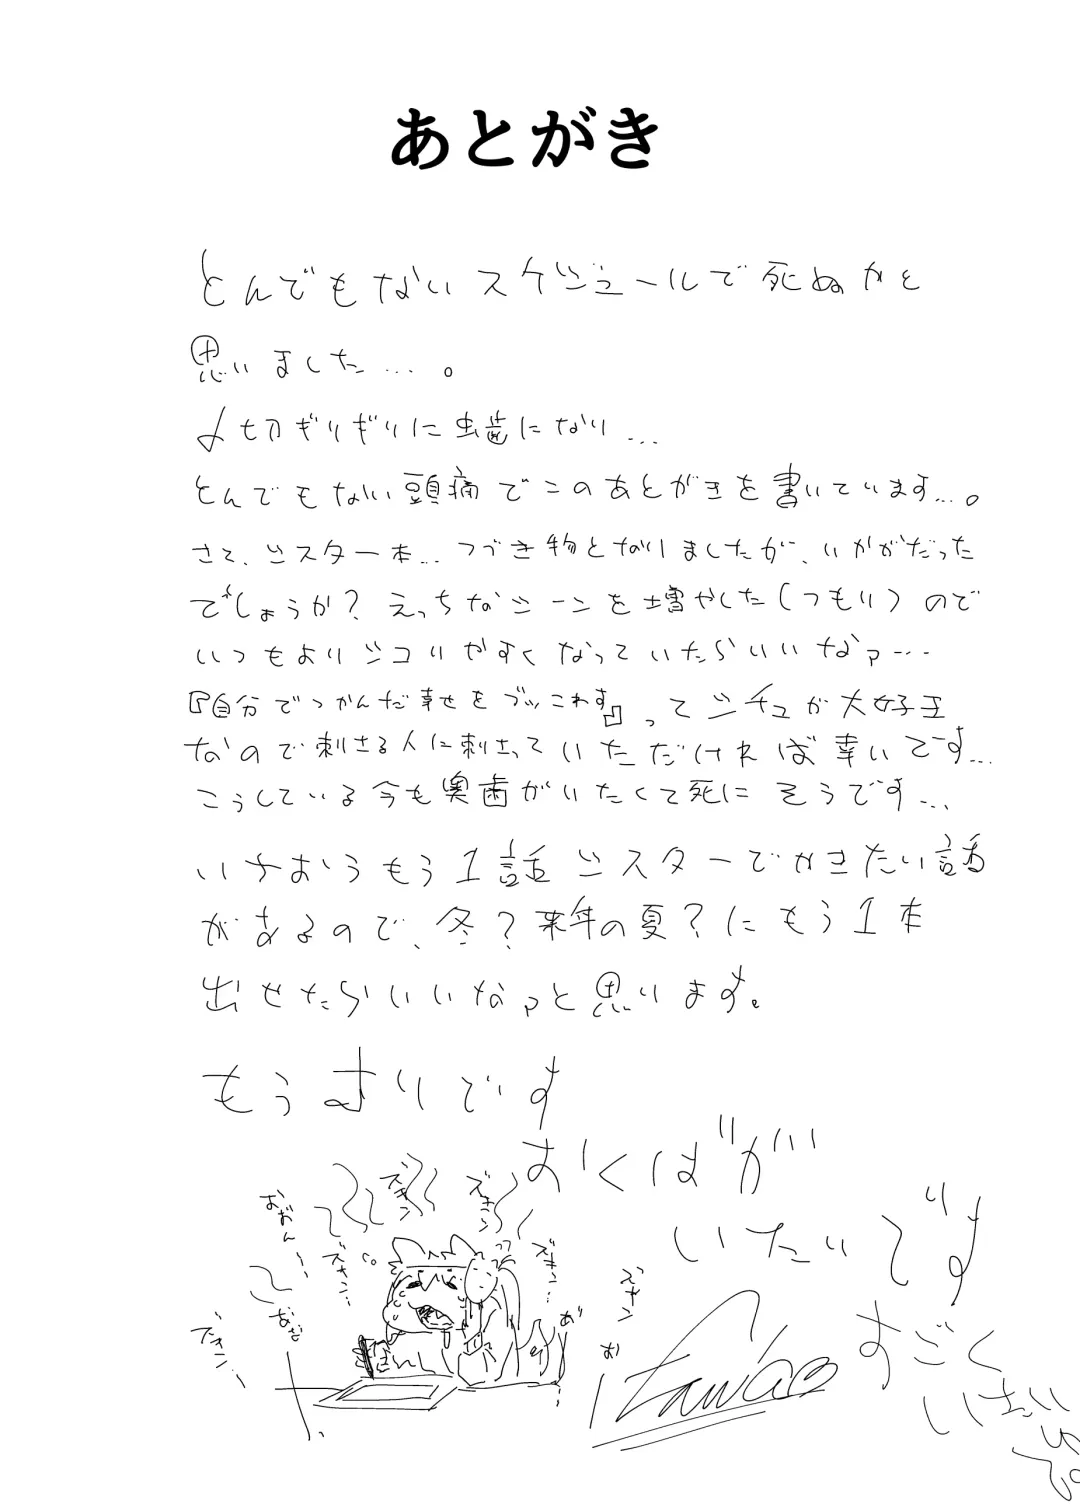 あとがき
とんでもないスケジュールで死ぬかと
思いました…。
〆切ぎりぎりに虫歯になり…
とんでもない頭痛でこのあとがきを書いています…。
さて、シスター本…つづき物となりましたが、いかがだった
でしょうか？えっちなシーンを増やした(つもり)ので
いつもよりシコりやすくなっていたらいいなァ…
『自分でつかんだ幸せをブッこわす』ってシチュが大好王
なので刺さる人に刺さっていただければ幸いです…
こうしている今も奥歯がいたくて死にそうです…
いちおうもう1話シスターでかきたい話
があるので、冬？来年の夏？にもう1本
出せたらいいなァと思います。
もうむりです
おくばが
いたいです
すごく
いたい
ズキン
ズキン
ズキン…
ズキン…
ズキン
おおん…
お